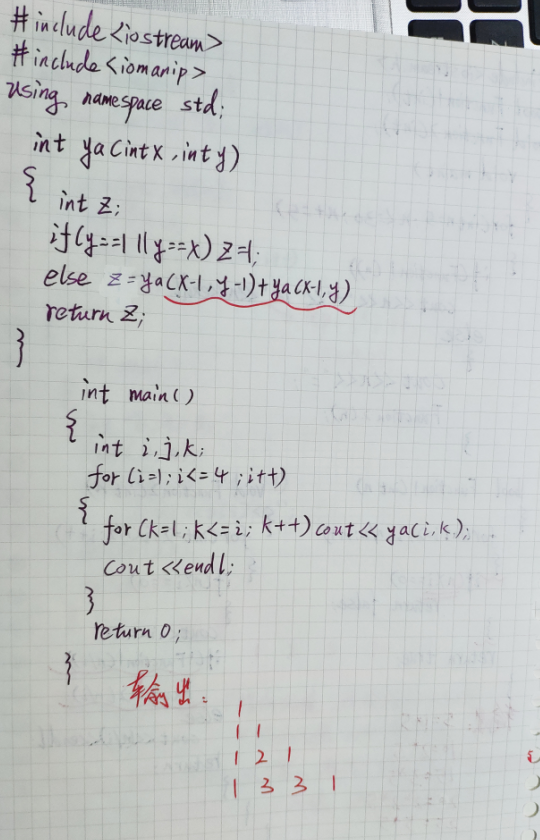 #include<iostream>
#include<iomanip>
using namespace std;
int ya(int x, int y)
{ int z;
if(y==1 || y==x) z=1;
else z=ya(x-1, y-1)+ya(x-1, y)
return z;
}
int main()
{
int i,j,k;
for (i=1; i<=4; i++)
{
for (k=1; k<=i; k++) cout<< ya(i,k);
cout<<endl;
}
return 0;
}
输出:
1
1 1
1 2 1
1 3 3 1